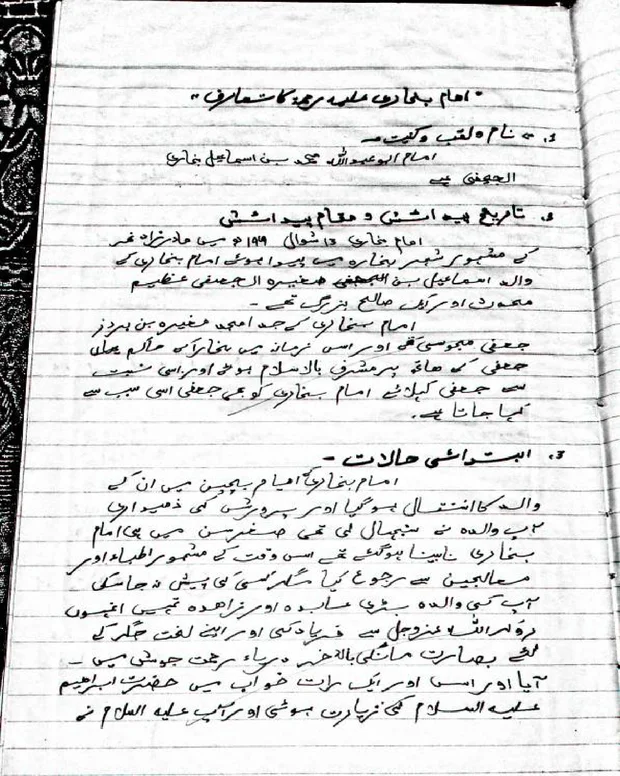 "امام بخاری علیہ رحمہ کا تعارف"
1. نام و لقب و کنیت
امام ابو عبداللہ محمد بن اسماعیل بخاری
الجعفی ہے
2. تاریخ پیدائش و مقام پیدائش
امام بخاری 13 شوال 194ھ میں
کے مشہور شہر بخارہ میں پیدا ہوئے امام بخاری کے
والد اسماعیل بن مغیرہ الجعفی عظیم
محدث اور ایک صالح بزرگ تھے -
امام بخاری کے جد امجد مغیرہ بن
جعفی مجوسی تھے اور اس زمانہ میں بخارا کے حاکم یمان
جعفی کے ہاتھ پر مشرف بالاسلام ہوئے اور اسی نسبت
سے جعفی کہلائے امام بخاری کو بھی جعفی اسی سبب سے
کہا جاتا ہے.
3. ابتدائی حالات -
امام بخاری کے ایام بچپن میں ان کے
والد کا انتقال ہو گیا اور پرورش کی ذمیداری
آپ والدہ نے سنبھال لی تھی صغیر سن میں ہی امام
بخاری نابینا ہو گئے تھے اس وقت کے مشہور اطباء اور
معالجین سے رجوع کیا مگر کسی کی پیش نہ جا سکی
آپ کی والدہ بڑی عابدہ اور زاھدہ تھیں انہوں
اللہ عزوجل سے فریاد کی اور اپنے لخت جگر کے
لئے بصارت مانگی بالآخر دریاء رحمت جوش میں -
آیا اور اس اور ایک رات خواب میں حضرت ابراھیم
علیہ السلام کی زیارت ہوئی اور آپ علیہ السلام نے